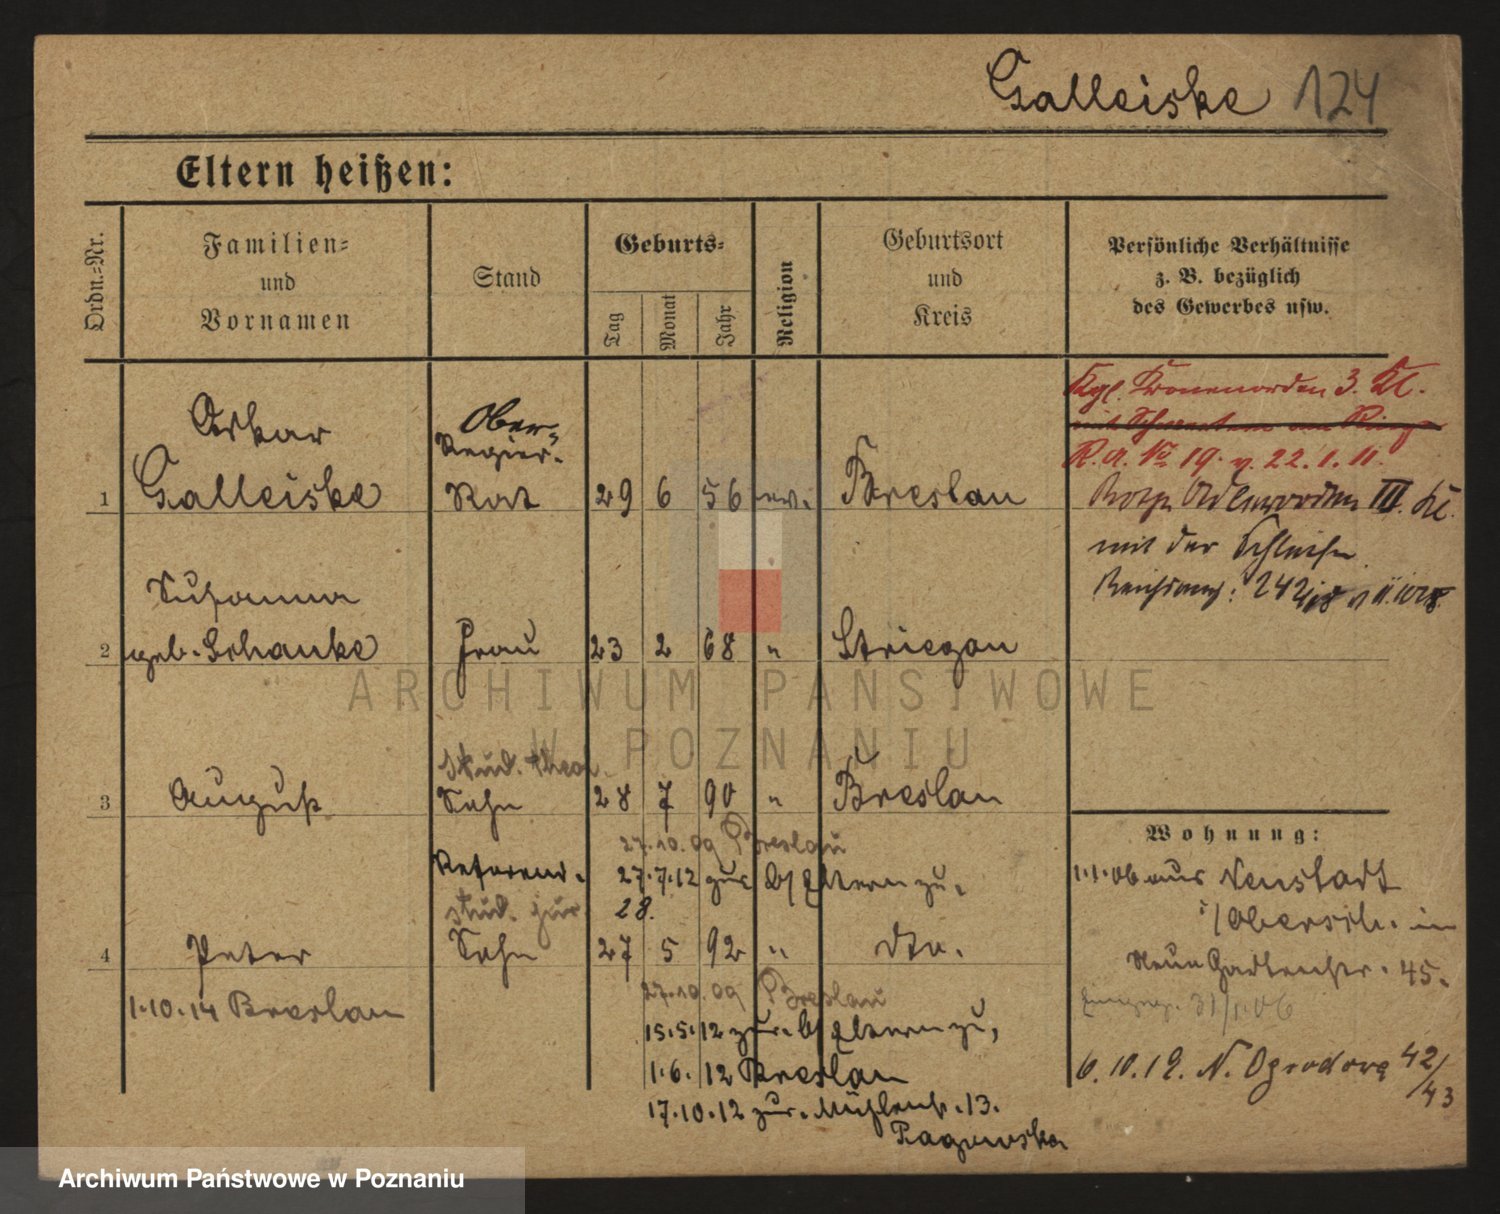 Galleiske 124
Eltern heißen:
Ordn.=Nr.
Familien=
und
Vornamen
Stand
Geburts=
Tag
Monat
Jahr
Religion
Geburtsort
und
Kreis
Persönliche Verhältnisse
z. B. bezüglich
des Gewerbes usw.
1
Oskar
Galleiske
Ober-
Regier-
Rat
29 6 56 ev. Breslau
Kgl. Kronenorden 3. Kl.
R. A. No 19. v. 22. 1. 11.
Roter Adlerorden III. Kl.
mit der Schleife
2
Susanna
geb. Schauke
Frau
23 2 68 " Striegau
3
August
stud. theol.
Sohn
28 7 90 " Breslau
27.10.09 Breslau
27.7.12 zur. b/ Eltern zu.
Referend.
stud. jur.
28.
4
Peter
Sohn
27 5 92 " dto.
1.10.14 Breslau
27.10.09 Breslau
15.5.12 zur. b/ Eltern zu,
1.6.12 Breslau
17.10.12 zur. Mühlenstr. 13.
Ragowska
Wohnung:
1.1.06 aus Neustadt
i/Obersch. in
Neue Gartenstr. 45.
31/1.06
6.10.19. N. Ogrodowa 42/
43
ARCHIWUM PAŃSTWOWE
W POZNANIU
Archiwum Państwowe w Poznaniu